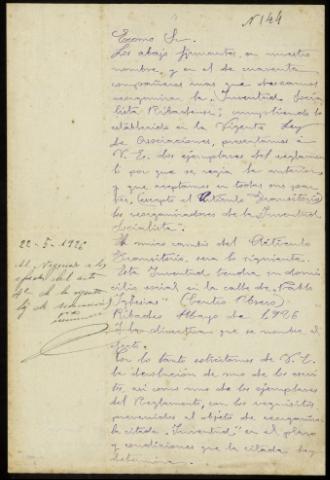 Nº 144
Excmo Sr.
Los abajo firmantes, en nuestro
nombre, y en el de cuarenta
compañeros mas que deseamos
reorganizar la "Juventud Socia-
lista Ribadense", cumpliendo lo
establecido en la Vigente Ley
de Asociaciones, presentamos a
V. E. dos ejemplares del reglamen-
to por que se regia la anterior
y que aceptamos en todas sus par-
tes, excepto el "Articulo Transitorio"
los reorganizadores de la "Juventud
Socialista".
El nuevo cambio del Articulo
Transitorio, sera lo siguiente:
Esta Juventud tendra su domi-
cilio social en la calle de "Pablo
Iglesias" (Centro Obrero).
Ribadeo Mayo de 1926
Y la directiva que se nombre al
efecto.
Por lo tanto solicitamos de V. E.
la devolución de uno de los escri-
tos, asi como uno de los ejemplares
del Reglamento, con los requisitos
prevenidos al objeto de reorganizar
la citada "Juventud" en el plazo
y condiciones que la citada ley
determina.
22-5-1926
Al Negociado a los
efectos del art
de la vigente
ley de